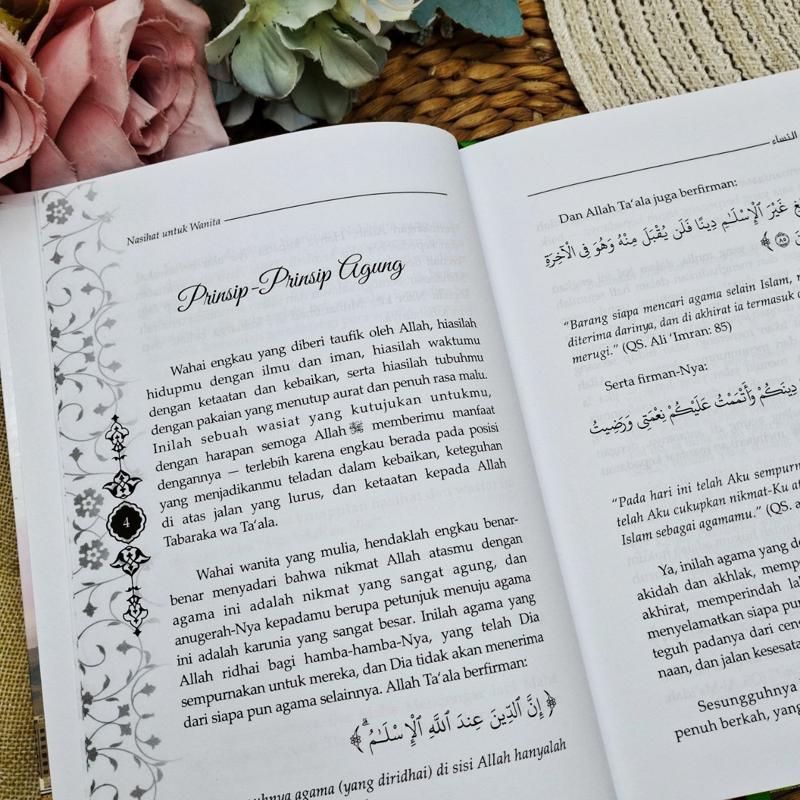 Nasihat untuk Wanita
Prinsip-Prinsip Agung
Wahai engkau yang diberi taufik oleh Allah, hiasilah
hidupmu dengan ilmu dan iman, hiasilah waktumu
dengan ketaatan dan kebaikan, serta hiasilah tubuhmu
dengan pakaian yang menutup aurat dan penuh rasa malu.
Inilah sebuah wasiat yang kutujukan untukmu,
dengan harapan semoga Allah ﷻ memberimu manfaat
dengannya — terlebih karena engkau berada pada posisi
yang menjadikanmu teladan dalam kebaikan, keteguhan
di atas jalan yang lurus, dan ketaatan kepada Allah
Tabaraka wa Ta‘ala.
4
Wahai wanita yang mulia, hendaklah engkau benar-
benar menyadari bahwa nikmat Allah atasmu dengan
agama ini adalah nikmat yang sangat agung, dan
anugerah-Nya kepadamu berupa petunjuk menuju agama
ini adalah karunia yang sangat besar. Inilah agama yang
Allah ridhai bagi hamba-hamba-Nya, yang telah Dia
sempurnakan untuk mereka, dan Dia tidak akan menerima
dari siapa pun agama selainnya. Allah Ta‘ala berfirman:
﴿ إِنَّ ٱلدِّينَ عِندَ ٱللَّهِ ٱلْإِسْلَـٰمُ ۗ ﴾
agama (yang diridhai) di sisi Allah hanyalah
النساء
Dan Allah Ta‘ala juga berfirman:
غَيْرَ ٱلْإِسْلَـٰمِ دِينًا فَلَن يُقْبَلَ مِنْهُ وَهُوَ فِى ٱلْـَٔاخِرَةِ
٨٥ ﴾
“Barang siapa mencari agama selain Islam,
diterima darinya, dan di akhirat ia termasuk
merugi.” (QS. Ali ‘Imran: 85)
Serta firman-Nya:
دِينَكُمْ وَأَتْمَمْتُ عَلَيْكُمْ نِعْمَتِى وَرَضِيتُ
“Pada hari ini telah Aku
telah Aku cukupkan nikmat-Ku
Islam sebagai agamamu.” (QS.
Ya, inilah agama yang
akidah dan akhlak,
akhirat, memperindah
menyelamatkan siapa
teguh padanya dari
naan, dan jalan
Sesungguhnya
penuh berkah,